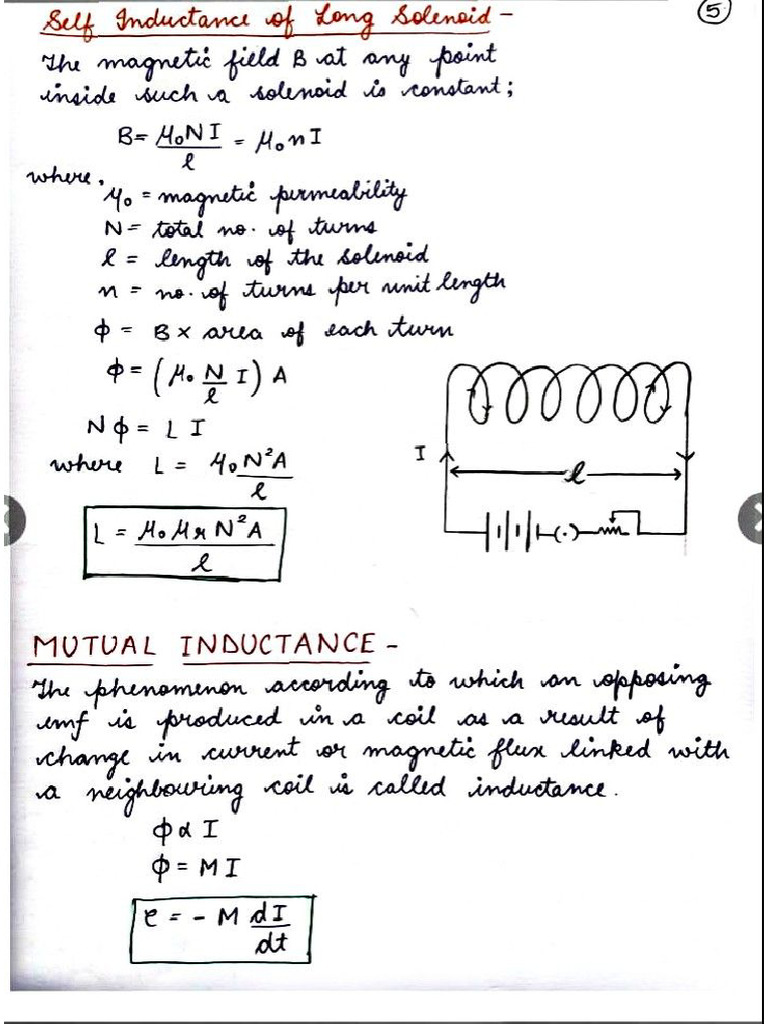 Self Inductance of Long Solenoid -
5
The magnetic field B at any point
inside such a solenoid is constant;
B = μ₀NI/l = μ₀nI
where,
μ₀ = magnetic permeability
N = total no. of turns
l = length of the solenoid
n = no. of turns per unit length
ϕ = B × area of each turn
ϕ = (μ₀ N/l I) A
Nϕ = L I
where L = μ₀N²A/l
L = μ₀μrN²A/l
I
l
MUTUAL INDUCTANCE -
The phenomenon according to which an opposing
emf is produced in a coil as a result of
change in current or magnetic flux linked with
a neighbouring coil is called inductance.
ϕ α I
ϕ = M I
e = - M dI/dt